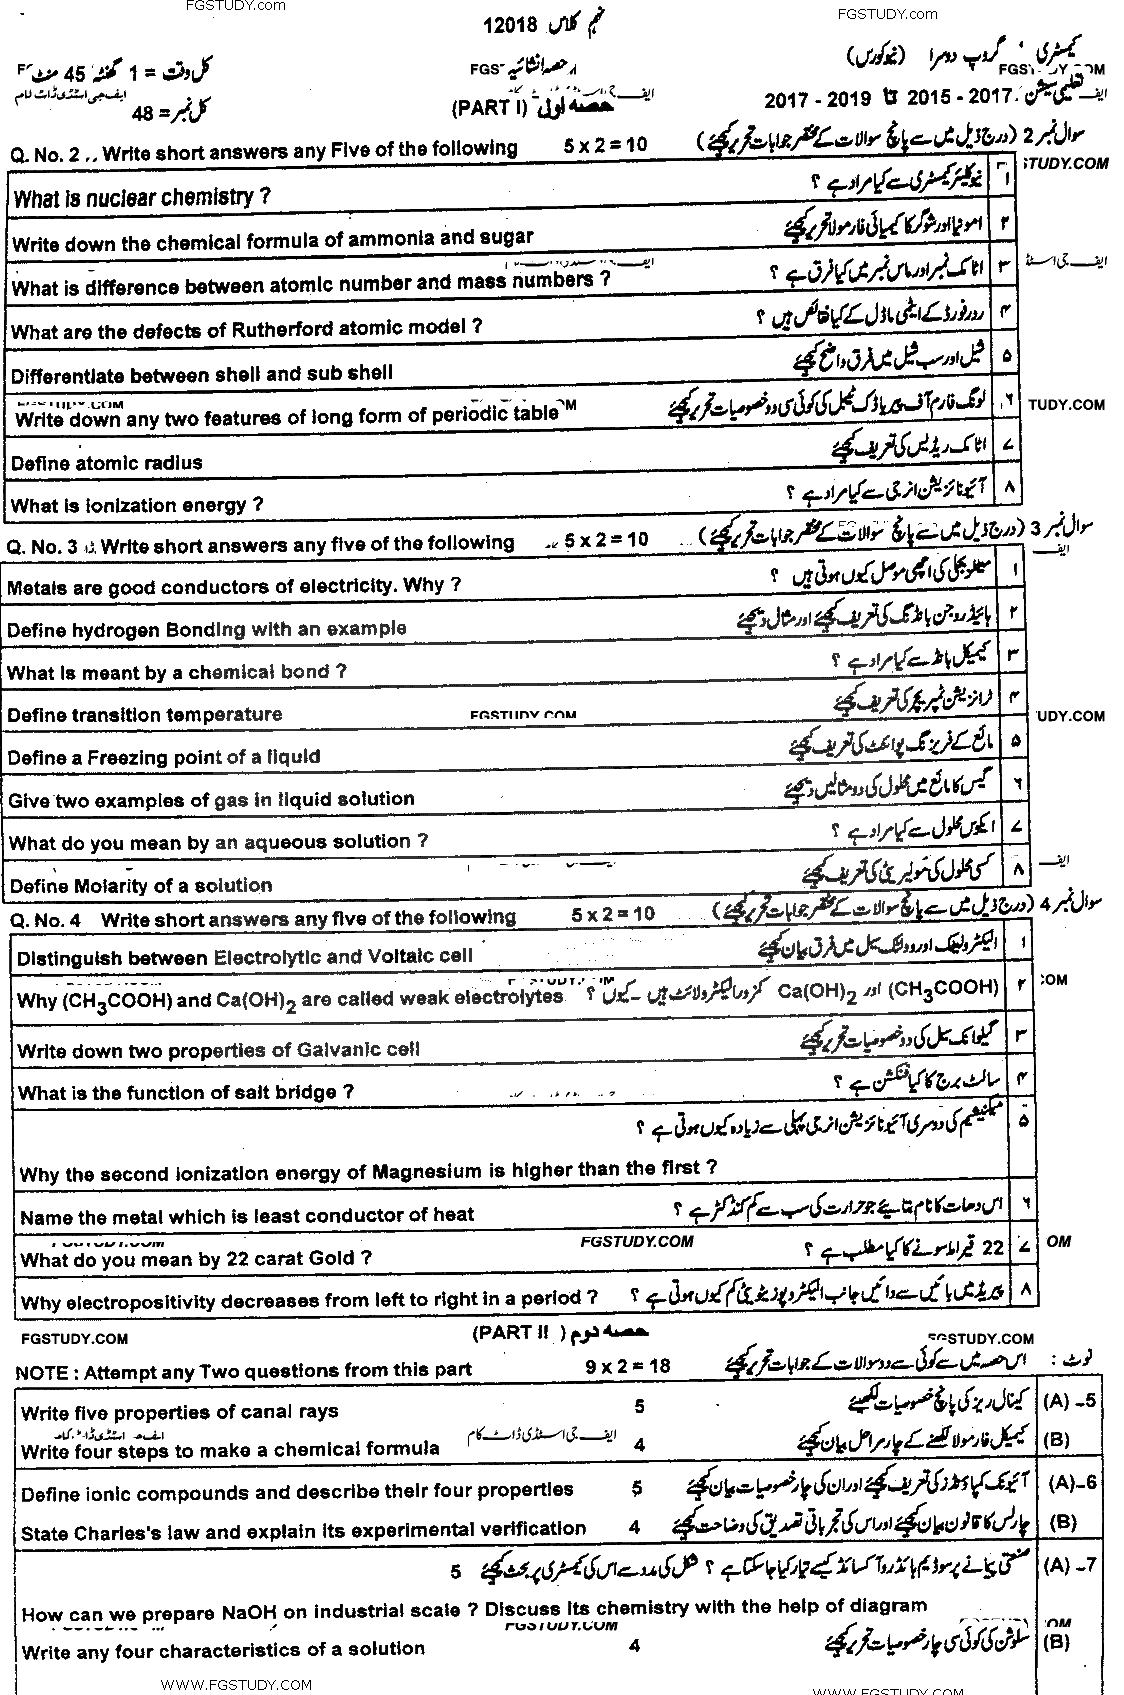 FGSTUDY.COM
FGSTUDY.COM
12018 نہم کلاس
کیمسٹری گروپ دوسرا (نیو کورس)
حصہ انشائیہ
کل وقت = 1 گھنٹہ 45 منٹ
FGSTUDY.COM
تعلیمی سیشن 2015 - 2017 تا 2017 - 2019
حصہ اولی (PART I)
کل نمبر = 48
ایف جی اسٹڈی ڈاٹ کام
سوال نمبر 2 (درج ذیل میں سے پانچ سوالات کے مختصر جوابات تحریر کیجئے)
Q. No. 2 .. Write short answers any Five of the following 5 x 2 = 10
STUDY.COM
۱ نیوکلیئر کیمسٹری سے کیا مراد ہے ؟
What is nuclear chemistry ?
۲ امونیا اور شوگر کا کیمیائی فارمولا تحریر کیجئے
Write down the chemical formula of ammonia and sugar
۳ اٹامک نمبر اور ماس نمبر میں کیا فرق ہے ؟
What is difference between atomic number and mass numbers ?
۴ ردرفورڈ کے ایٹمی ماڈل کے کیا نقائص ہیں ؟
What are the defects of Rutherford atomic model ?
۵ شیل اور سب شیل میں فرق واضح کیجئے
Differentiate between shell and sub shell
۶ لونگ فارم آف پیریاڈک ٹیبل کی کوئی سی دو خصوصیات تحریر کیجئے
Write down any two features of long form of periodic table
TUDY.COM
۷ اٹامک ریڈیس کی تعریف کیجئے
Define atomic radius
۸ آئیونائزیشن انرجی سے کیا مراد ہے ؟
What is ionization energy ?
سوال نمبر 3 (درج ذیل میں سے پانچ سوالات کے مختصر جوابات تحریر کیجئے)
Q. No. 3 Write short answers any five of the following 5 x 2 = 10
۱ میٹلز بجلی کی اچھی موصل کیوں ہوتی ہیں ؟
Metals are good conductors of electricity. Why ?
۲ ہائیڈروجن بانڈنگ کی تعریف کیجئے اور مثال دیجئے
Define hydrogen Bonding with an example
۳ کیمیکل بانڈ سے کیا مراد ہے ؟
What is meant by a chemical bond ?
۴ ٹرانزیشن ٹمپریچر کی تعریف کیجئے
Define transition temperature
FGSTUDY.COM
UDY.COM
۵ مائع کے فریزنگ پوائنٹ کی تعریف کیجئے
Define a Freezing point of a liquid
۶ گیس کا مائع میں محلول کی دو مثالیں دیجئے
Give two examples of gas in liquid solution
۷ ایکوس محلول سے کیا مراد ہے ؟
What do you mean by an aqueous solution ?
۸ کسی محلول کی مولیریٹی کی تعریف کیجئے
Define Molarity of a solution
سوال نمبر 4 (درج ذیل میں سے پانچ سوالات کے مختصر جوابات تحریر کیجئے)
Q. No. 4 Write short answers any five of the following 5 x 2 = 10
۱ الیکٹرولیٹک اور وولٹیک سیل میں فرق بیان کیجئے
Distinguish between Electrolytic and Voltaic cell
۲ (CH3COOH) اور Ca(OH)2 کمزور الیکٹرولائٹ ہیں ـ کیوں ؟
Why (CH3COOH) and Ca(OH)2 are called weak electrolytes
COM
۳ گیلوانک سیل کی دو خصوصیات تحریر کیجئے
Write down two properties of Galvanic cell
۴ سالٹ برج کا کیا فنکشن ہے ؟
What is the function of salt bridge ?
۵ میگنیشیم کی دوسری آئیونائزیشن انرجی پہلی سے زیادہ کیوں ہوتی ہے ؟
Why the second ionization energy of Magnesium is higher than the first ?
۶ اس دھات کا نام بتایئے جو حرارت کی سب سے کم کنڈکٹر ہے ؟
Name the metal which is least conductor of heat
۷ 22 قیراط سونے کا کیا مطلب ہے ؟
What do you mean by 22 carat Gold ?
FGSTUDY.COM
OM
۸ پیریڈ میں بائیں سے دائیں جانب الیکٹروپوزیٹویٹی کم کیوں ہوتی ہے ؟
Why electropositivity decreases from left to right in a period ?
FGSTUDY.COM
حصہ دوم (PART II)
FGSTUDY.COM
نوٹ : اس حصہ میں سے کوئی سے دو سوالات کے جوابات تحریر کیجئے
NOTE : Attempt any Two questions from this part 9 x 2 = 18
(A) -5 کینال ریز کی پانچ خصوصیات لکھیئے
Write five properties of canal rays 5
ایف جی اسٹڈی ڈاٹ کام
(B) کیمیکل فارمولا لکھنے کے چار مراحل بیان کیجئے
Write four steps to make a chemical formula 4
(A)-6 آئیونک کمپاؤنڈز کی تعریف کیجئے اور ان کی چار خصوصیات بیان کیجئے
Define ionic compounds and describe their four properties 5
(B) چارلس کا قانون بیان کیجئے اور اس کی تجرباتی تصدیق کی وضاحت کیجئے
State Charles's law and explain its experimental verification 4
(A) -7 صنعتی پیمانے پر سوڈیم ہائڈروآکسائڈ کیسے تیار کیا جاسکتا ہے ؟ شکل کی مدد سے اس کی کیمسٹری پر بحث کیجئے 5
How can we prepare NaOH on industrial scale ? Discuss its chemistry with the help of diagram
FGSTUDY.COM
OM
(B) سلوشن کی کوئی سی چار خصوصیات تحریر کیجئے
Write any four characteristics of a solution 4
WWW.FGSTUDY.COM
WWW.FGSTUDY.COM